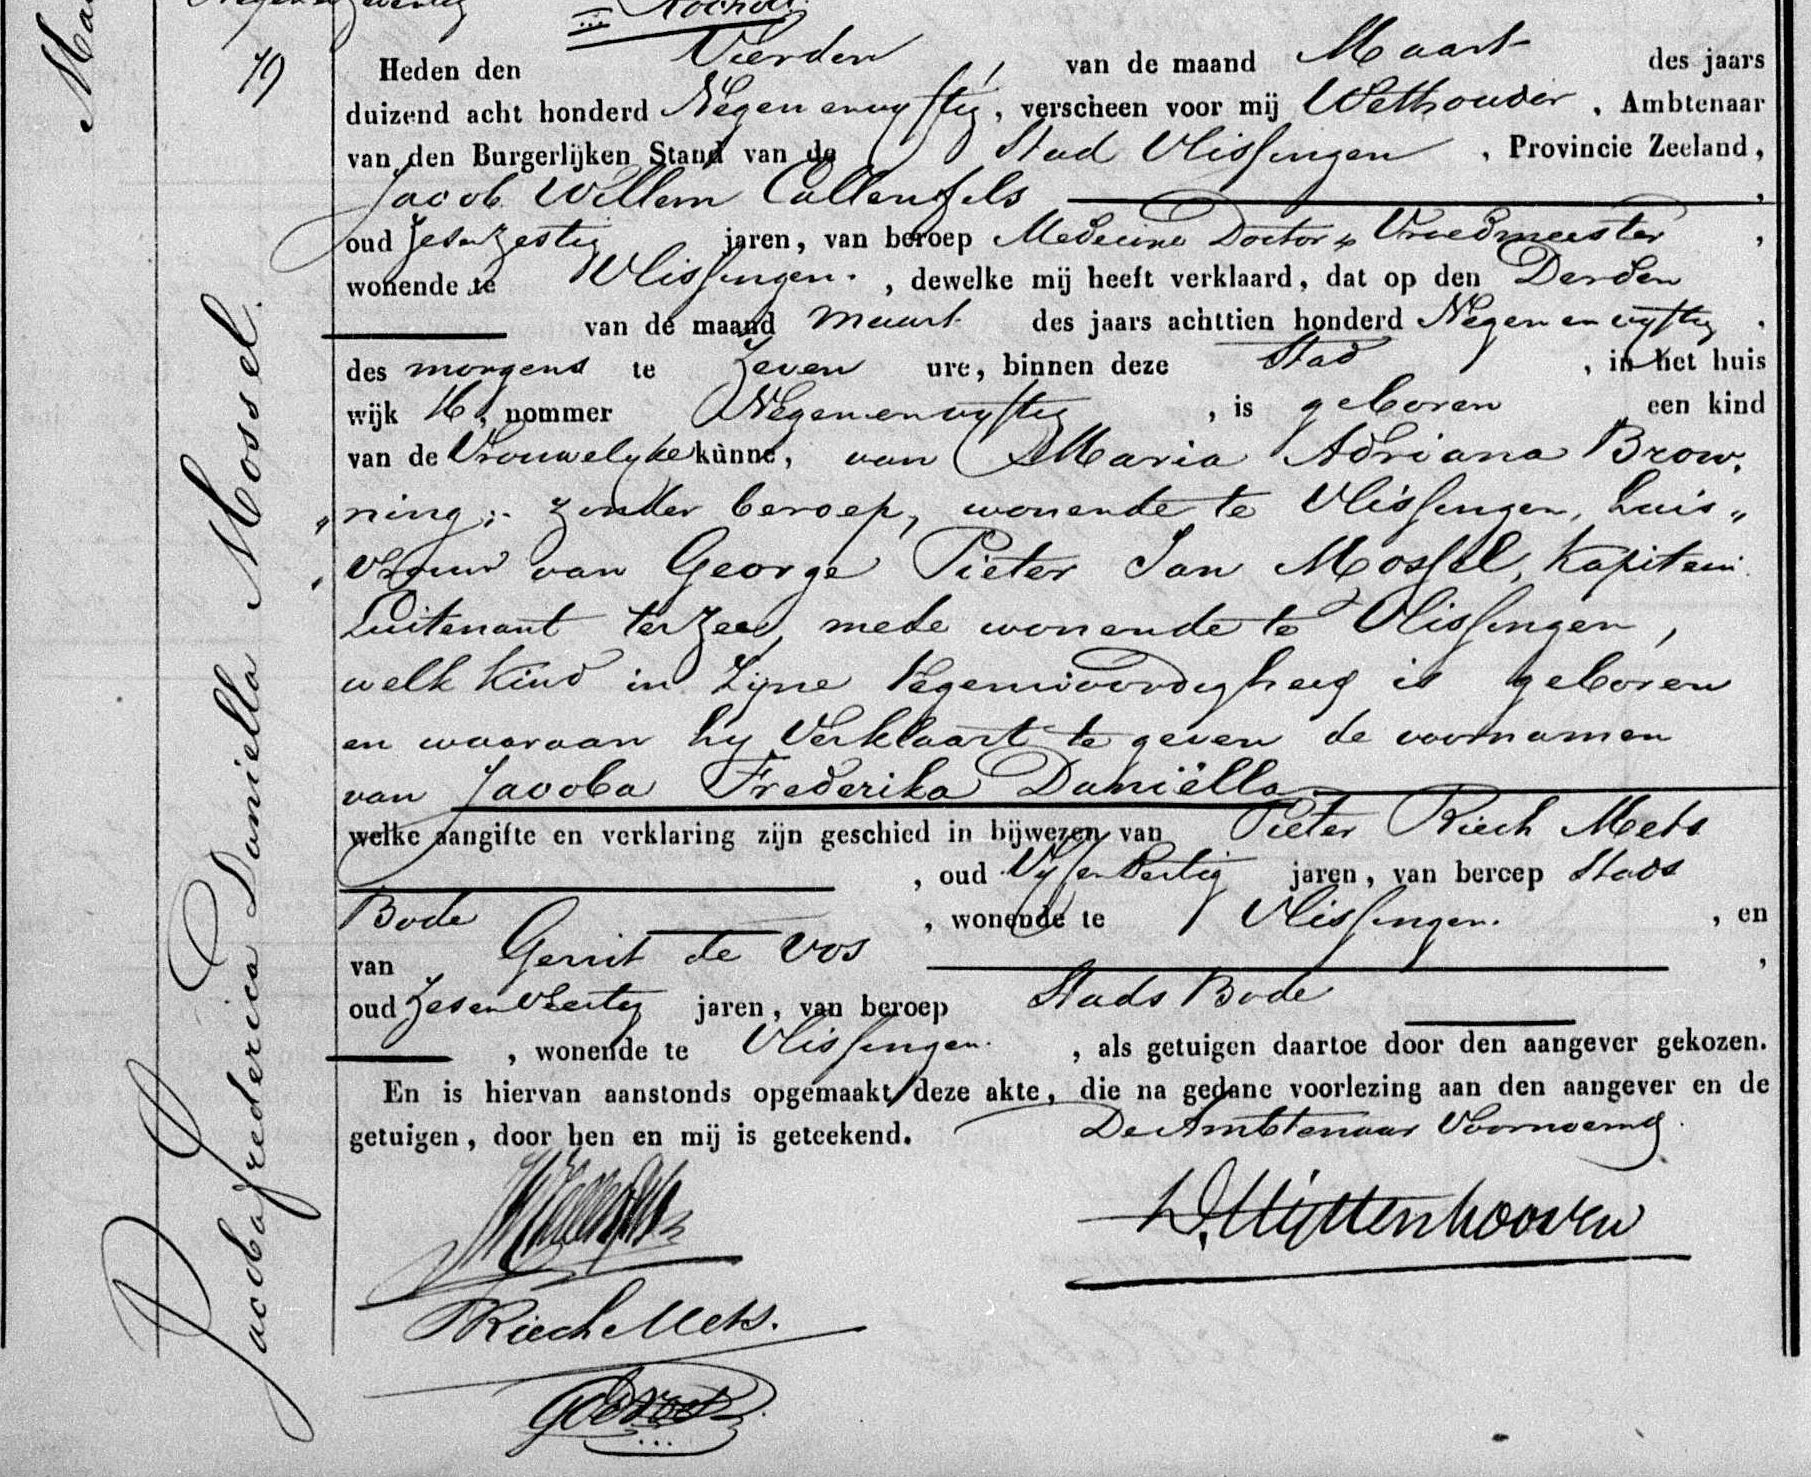 79
Heden den Vierden, van de maand Maart des jaars
duizend acht honderd Negen en vyftig, verscheen voor mij Wethouder, Ambtenaar
van den Burgerlijken Stand van de Stad Vlissingen, Provincie Zeeland,
Jacob Willem Callenfels,
oud Zesenzestig jaren, van beroep Medecine Doctor & Vroedmeester,
wonende te Vlissingen, dewelke mij heeft verklaard, dat op den Derden
van de maand Maart des jaars achttien honderd Negen en vyftig,
des morgens te Zeven ure, binnen deze Stad, in het huis
wijk K, nommer Negen en vyftig, is geboren een kind
van de Vrouwelyke kunne, van Maria Adriana Brow„
„ning, zonder beroep, wonende te Vlissingen, huis„
„vrouw van George Pieter Jan Mossel, Kapitein
Luitenant ter Zee, mede wonende te Vlissingen,
welk kind in Zyne tegenwoordigheid is geboren
en waaraan hy Verklaart te geven de voornamen
van Jacoba Frederika Daniëlla
welke aangifte en verklaring zijn geschied in bijwezen van Pieter Riech Mets
, oud Vyf en Dertig jaren, van beroep Stads
Bode, wonende te Vlissingen, en
van Gerrit de Vos,
oud Zes en Veertig jaren, van beroep Stads Bode
, wonende te Vlissingen, als getuigen daartoe door den aangever gekozen.
En is hiervan aanstonds opgemaakt deze akte, die na gedane voorlezing aan den aangever en de
getuigen, door hen en mij is geteekend. De Ambtenaar Voornoemd.
PRiech Mets.
GDeVos
Jacoba Frederica Daniella Mossel.